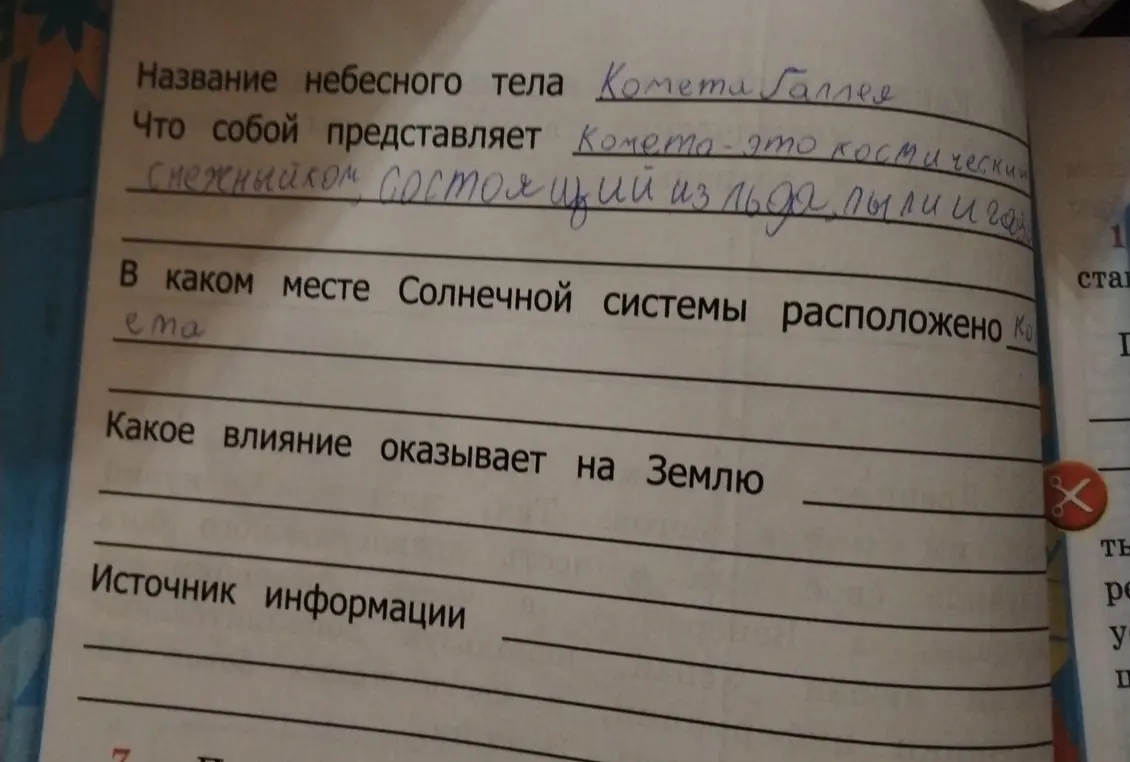 Название небесного тела Комета Галлея
Что собой представляет Комета - это космический
снежный ком, состоящий из льда, пыли и газа
В каком месте Солнечной системы расположено Ко
ета
Какое влияние оказывает на Землю
Источник информации
7
1
ста
ть
ре
у